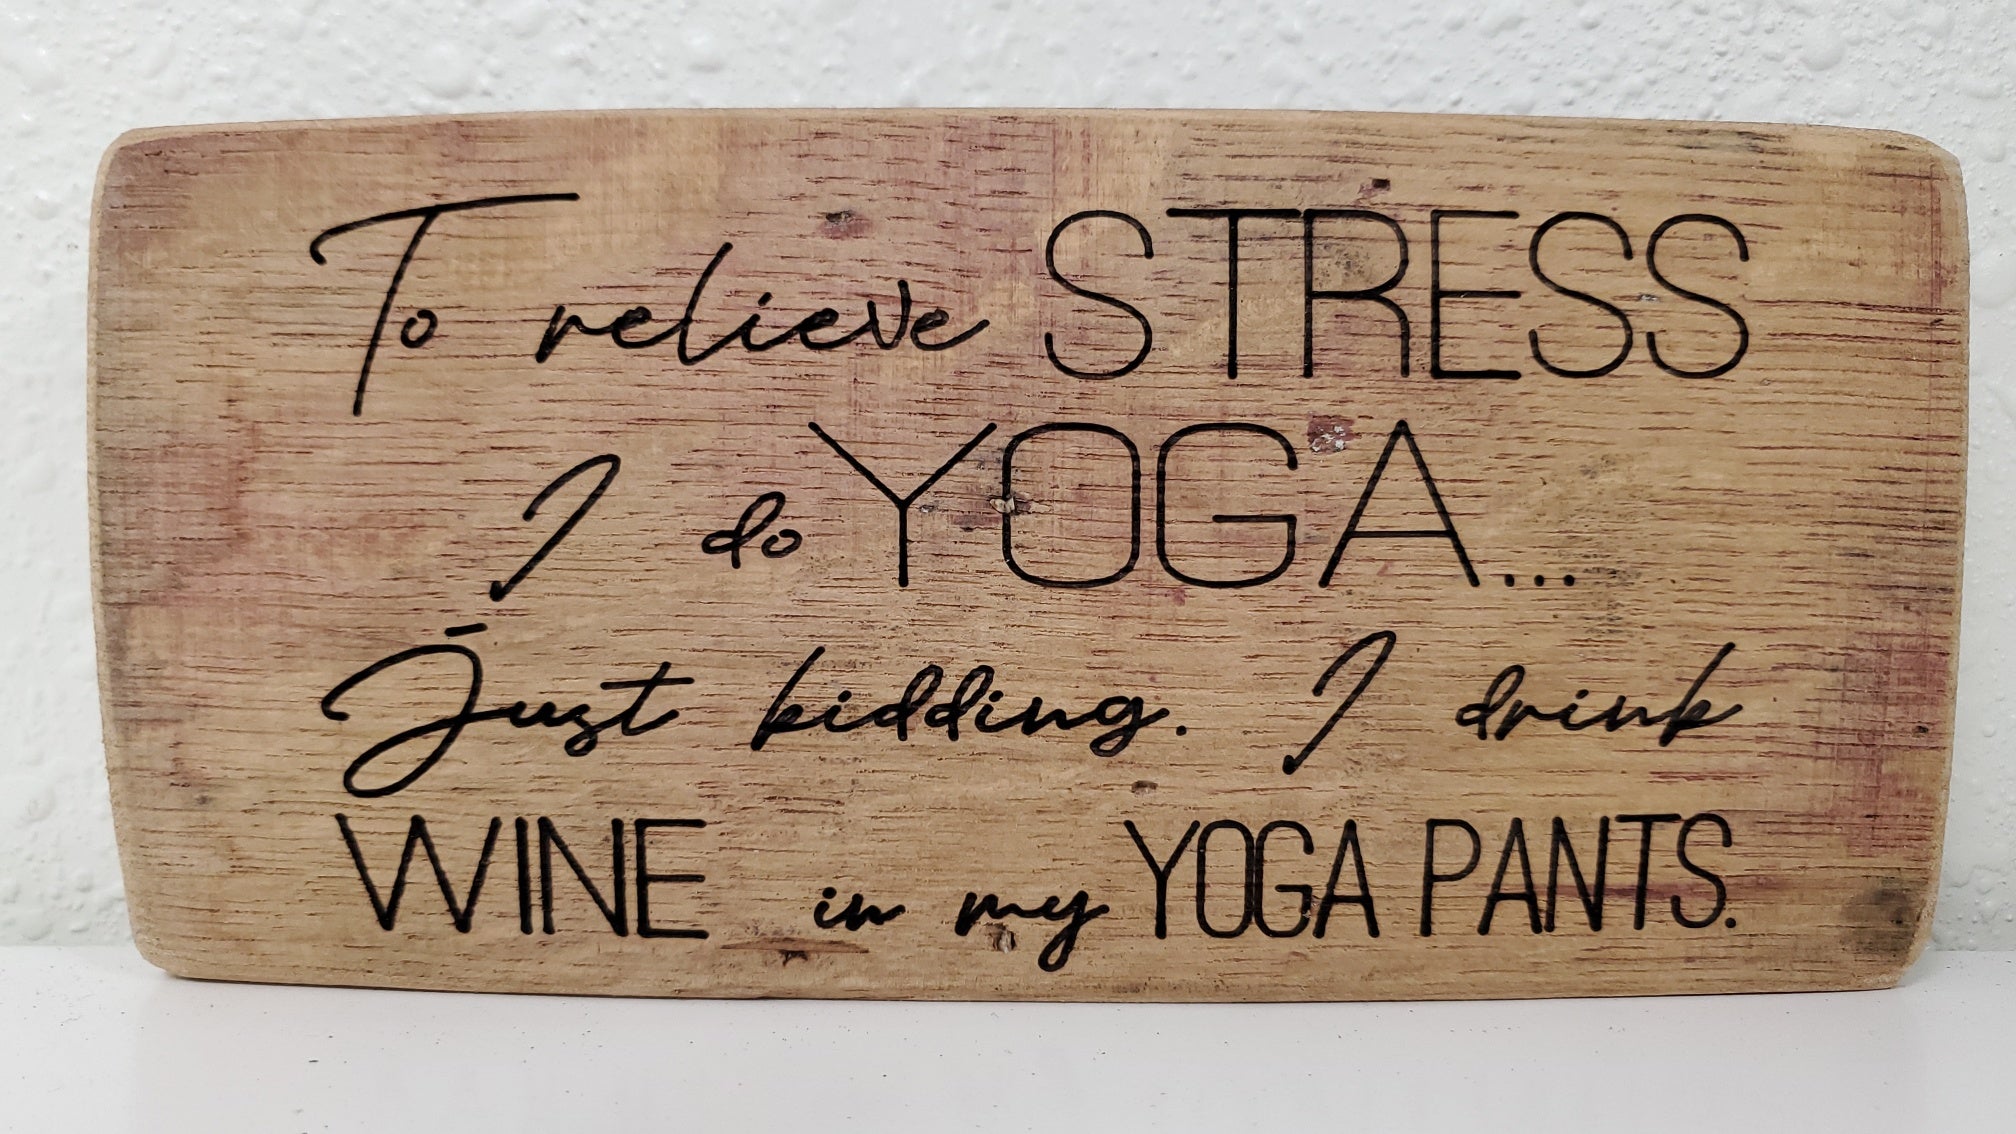 To relieve STRESS
I do YOGA...
Just kidding. I drink
WINE in my YOGA PANTS.